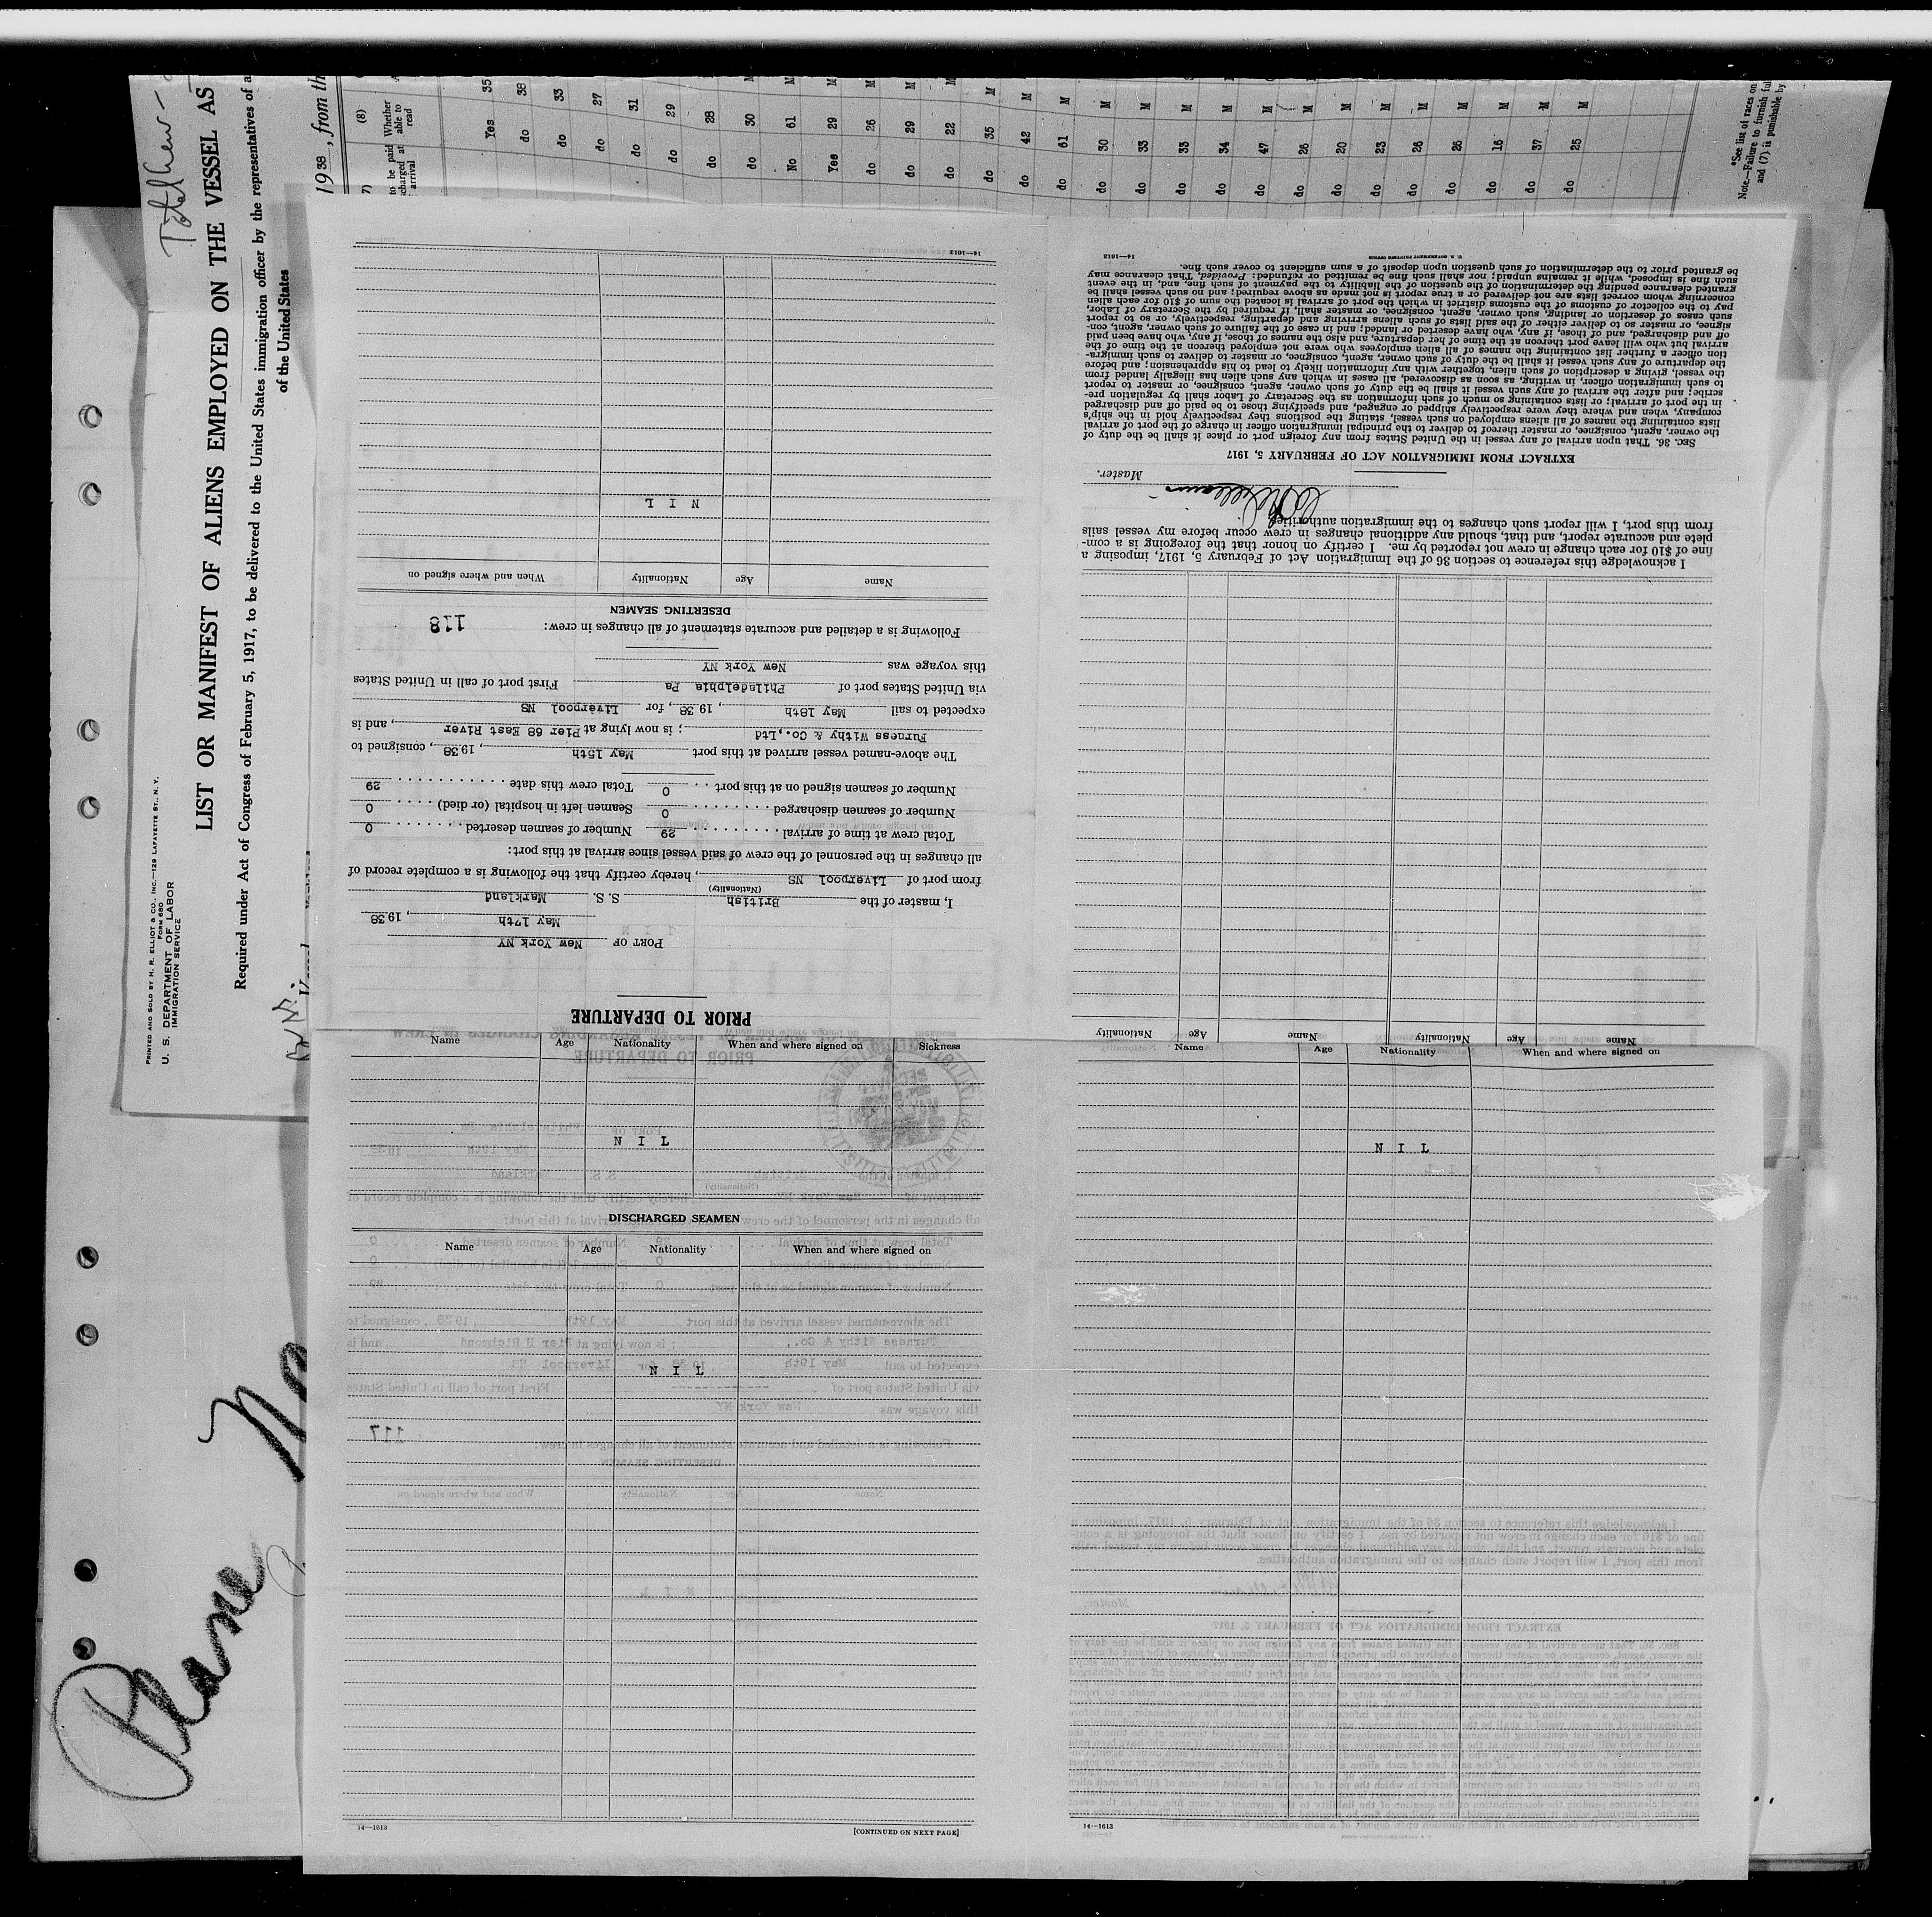 PRINTED AND SOLD BY H. R. ELLIOT & CO., INC.—129 LAFAYETTE ST., N. Y.
FORM 680
U. S. DEPARTMENT OF LABOR
IMMIGRATION SERVICE
Total Crew -
LIST OR MANIFEST OF ALIENS EMPLOYED ON THE VESSEL AS
Required under Act of Congress of February 5, 1917, to be delivered to the United States immigration officer by the representatives of a
of the United States
1938, from th
7) (8)
to be paid Whether
scharged at able to
arrival read
Yes 35
do 38
do 33
do 27
do 31
do 29
do 28 M
do 30 M
No 61 M
Yes 29 M
do 26 M
do 29 M
do 22 M
do 35 M
do 42 M
do 61 M
do 30 M
do 33 M
do 33 M
do 34 M
do 47 M
do 26 M
do 20 M
do 23 M
do 26 M
do 26 M
do 16 M
do 37 M
do 25 M
*See list of races on
Note.—Failure to furnish ful
and (7) is punishable by
Plane
PRIOR TO DEPARTURE
PORT OF New York NY
May 17th, 1938
I, master of the British S. S. Markland
(Nationality)
from port of Liverpool NS, hereby certify that the following is a complete record of
all changes in the personnel of the crew of said vessel since arrival at this port:
Total crew at time of arrival 29 Number of seamen deserted 0
Number of seamen discharged 0 Seamen left in hospital (or died) 0
Number of seamen signed on at this port 0 Total crew this date 29
The above-named vessel arrived at this port May 15th, 1938, consigned to
Furness Withy & Co.,Ltd; is now lying at Pier 68 East River, and is
expected to sail May 18th, 1938, for Liverpool NS
via United States port of Philadelphia Pa First port of call in United States
this voyage was New York NY
Following is a detailed and accurate statement of all changes in crew: 118
DESERTING SEAMEN
Name Age Nationality When and where signed on
N I L
14—1613
Name Age Nationality Name Age Nationality
I acknowledge this reference to section 36 of the Immigration Act of February 5, 1917, imposing a
fine of $10 for each change in crew not reported by me. I certify on honor that the foregoing is a com-
plete and accurate report, and that, should any additional changes in crew occur before my vessel sails
from this port, I will report such changes to the immigration authorities.
Master.
EXTRACT FROM IMMIGRATION ACT OF FEBRUARY 5, 1917
SEC. 36. That upon arrival of any vessel in the United States from any foreign port or place it shall be the duty of
the owner, agent, consignee, or master thereof to deliver to the principal immigration officer in charge of the port of arrival
lists containing the names of all aliens employed on such vessel, stating the positions they respectively hold in the ship's
company, when and where they were respectively shipped or engaged, and specifying those to be paid off and discharged
in the port of arrival; or lists containing so much of such information as the Secretary of Labor shall by regulation pre-
scribe; and after the arrival of any such vessel it shall be the duty of such owner, agent, consignee, or master to report
to such immigration officer, in writing, as soon as discovered, all cases in which any such alien has illegally landed from
the vessel, giving a description of such alien, together with any information likely to lead to his apprehension; and before
the departure of any such vessel it shall be the duty of such owner, agent, consignee, or master to deliver to such immigra-
tion officer a further list containing the names of all alien employees who were not employed thereon at the time of the
arrival but who will leave port thereon at the time of her departure, and also the names of those, if any, who have been paid
off and discharged, and of those, if any, who have deserted or landed; and in case of the failure of such owner, agent, con-
signee, or master so to deliver either of the said lists of such aliens arriving and departing, respectively, or so to report
such cases of desertion or landing, such owner, agent, consignee, or master shall, if required by the Secretary of Labor,
pay to the collector of customs of the customs district in which the port of arrival is located the sum of $10 for each alien
concerning whom correct lists are not delivered or a true report is not made as above required; and no such vessel shall be
granted clearance pending the determination of the question of the liability to the payment of such fine, and, in the event
such fine is imposed, while it remains unpaid; nor shall such fine be remitted or refunded: Provided, That clearance may
be granted prior to the determination of such question upon deposit of a sum sufficient to cover such fine.
U. S. GOVERNMENT PRINTING OFFICE 14—1613
Name Age Nationality When and where signed on Sickness
N I L
DISCHARGED SEAMEN
Name Age Nationality When and where signed on
N I L
14—1613 [CONTINUED ON NEXT PAGE]
Name Age Nationality When and where signed on
N I L
14—1613